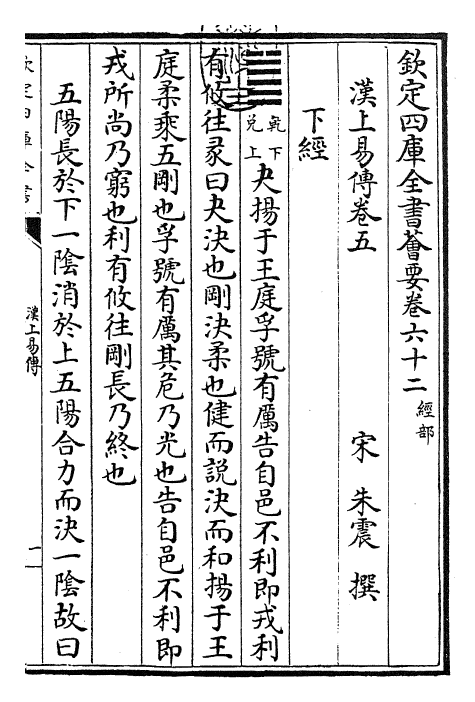 欽定四庫全書薈要卷六十二 經部
漢上易傳卷五 宋 朱震 撰
下經
乾下兌上 夬揚于王庭孚號有厲告自邑不利即戎利
有攸往彖曰夬決也剛決柔也健而說決而和揚于王
庭柔乘五剛也孚號有厲其危乃光也告自邑不利即
戎所尚乃窮也利有攸往剛長乃終也
五陽長於下一陰消於上五陽合力而決一陰故曰
漢上易傳
一